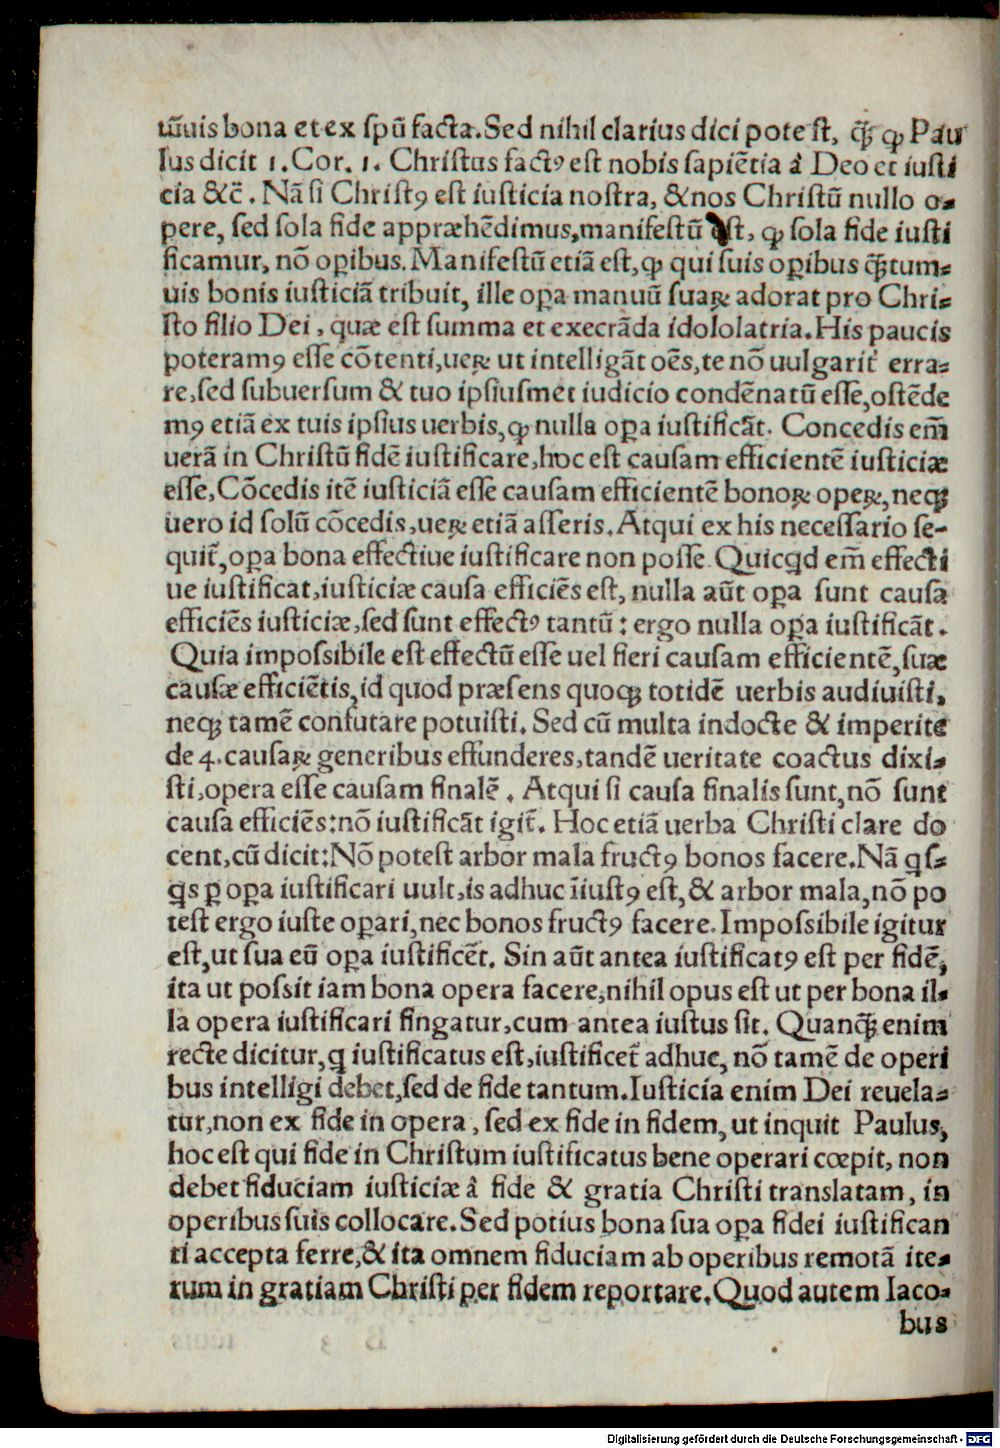 tũuis bona et ex spũ facta. Sed nihil clarius dici potest, ꝙ̃ ꝙ Pau
lus dicit 1. Cor. 1. Christus factꝰ est nobis sapiẽtia à Deo et iusti
cia &c̃. Nã si Christꝰ est iusticia nostra, & nos Christũ nullo o-
pere, sed sola fide appræhẽdimus, manifestũ est, ꝙ sola fide iusti
ficamur, nõ oꝑibus. Manifestũ etiã est, ꝙ qui suis oꝑibus ꝙ̃tum-
uis bonis iusticiã tribuit, ille oꝑa manuũ suaꝝ adorat pro Chri-
sto filio Dei, quæ est summa et execrãda idololatria. His paucis
poteramꝰ esse cõtenti, ueꝝ ut intelligãt oẽs, te nõ uulgarit̾ erra-
re, sed subuersum & tuo ipsiusmet iudicio condẽnatũ esse, ostẽde
mꝰ etiã ex tuis ipsius uerbis, ꝙ nulla oꝑa iustificãt. Concedis em̃
uerã in Christũ fidẽ iustificare, hoc est causam efficientẽ iusticiæ
esse, Cõcedis itẽ iusticiã esse causam efficientẽ bonoꝝ opeꝝ, neqꝫ
uero id solũ cõcedis, ueꝝ etiã asseris. Atqui ex his necessario se-
quit̃, oꝑa bona effectiue iustificare non posse. Quicꝗd em̃ effecti
ue iustificat, iusticiæ causa efficiẽs est, nulla aũt oꝑa sunt causa
efficiẽs iusticiæ, sed sunt effectꝰ tantũ: ergo nulla oꝑa iustificãt.
Quia impossibile est effectũ esse uel fieri causam efficientẽ, suæ
causæ efficiẽtis, id quod præsens quoqꝫ totidẽ uerbis audiuisti,
neqꝫ tamẽ confutare potuisti. Sed cũ multa indocte & imperite
de 4. causaꝝ generibus effunderes, tandẽ ueritate coactus dixi-
sti, opera esse causam finalẽ. Atqui si causa finalis sunt, nõ sunt
causa efficiẽs: nõ iustificãt igit̃. Hoc etiã uerba Christi clare do
cent, cũ dicit: Nõ potest arbor mala fructꝰ bonos facere. Nã ꝗs-
ꝗs ꝑ oꝑa iustificari uult, is adhuc ĩiustꝰ est, & arbor mala, nõ po
test ergo iuste oꝑari, nec bonos fructꝰ facere. Impossibile igitur
est, ut sua eũ oꝑa iustificẽt. Sin aũt antea iustificatꝰ est per fidẽ,
ita ut possit iam bona opera facere, nihil opus est ut per bona il-
la opera iustificari fingatur, cum antea iustus sit. Quanꝙ̃ enim
recte dicitur, ꝗ iustificatus est, iustificet̃ adhuc, nõ tamẽ de operi
bus intelligi debet, sed de fide tantum. Iusticia enim Dei reuela-
tur, non ex fide in opera, sed ex fide in fidem, ut inquit Paulus,
hoc est qui fide in Christum iustificatus bene operari cœpit, non
debet fiduciam iusticiæ à fide & gratia Christi translatam, in
operibus suis collocare. Sed potius bona sua oꝑa fidei iustifican
ti accepta ferre, & ita omnem fiduciam ab operibus remotã ite-
rum in gratiam Christi per fidem reportare. Quod autem Iaco-
bus
Digitalisierung gefördert durch die Deutsche Forschungsgemeinschaft - DFG